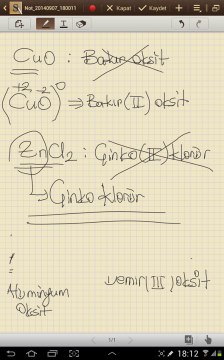 Not_20140907_180011
Kapat
Kaydet
CuO : Bakır oksit
+2 -2 0
(CuO) ⇒ Bakır (II) oksit
ZnCl2 : Çinko (II) klorür
Çinko klorür
Alüminyum
oksit
Demir (III) oksit
1/1
18:12